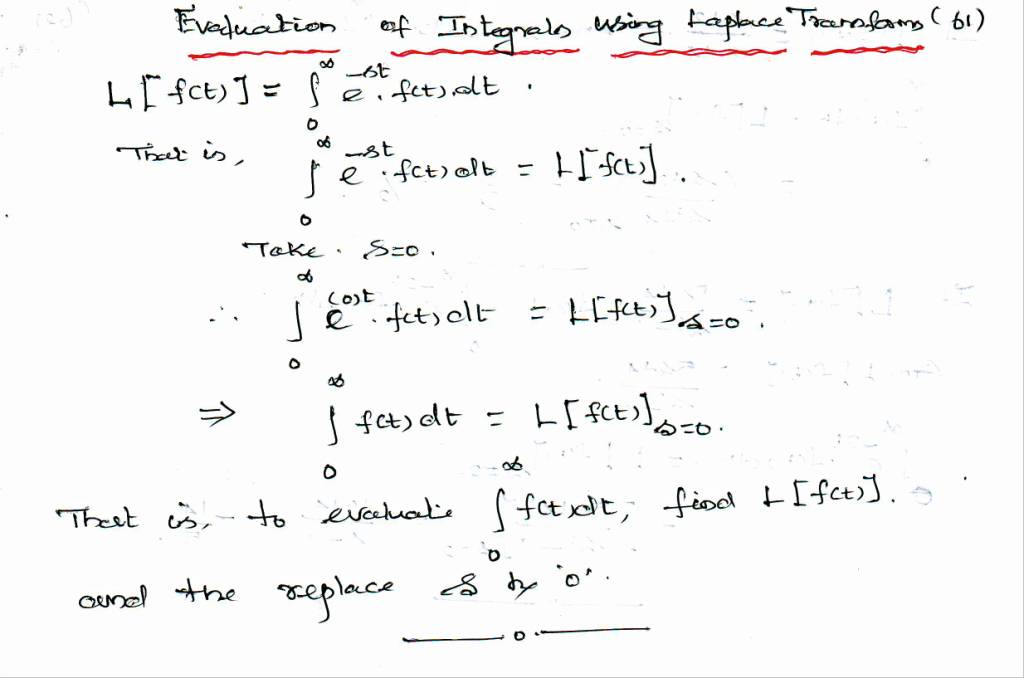 Evaluation of Integrals using Laplace Transforms (61)
L[f(t)] = ∫₀^∞ e^{-st}. f(t).dt .
That is, ∫₀^∞ e^{-st}. f(t) dt = L[f(t)] .
Take . s=0 .
∴ ∫₀^∞ e^{(0)t}. f(t) dt = L[f(t)]_{s=0} .
⇒ ∫₀^∞ f(t) dt = L[f(t)]_{s=0} .
That is, to evaluate ∫₀^∞ f(t) dt, find L[f(t)].
and the replace s by '0'.